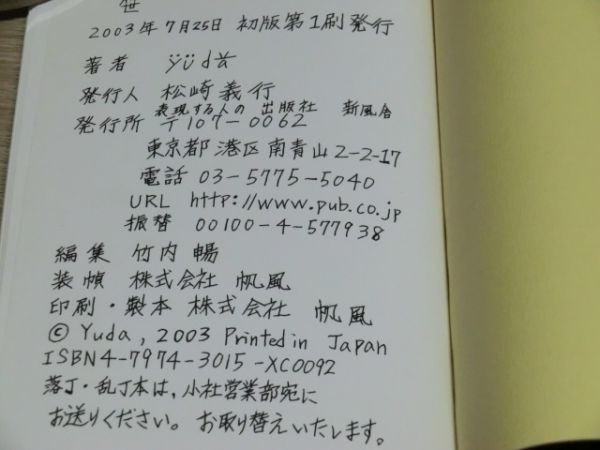 世
2003年7月25日 初版第1刷発行
著者 ÿüdä
発行人 松崎義行
表現する人の 出版社 新風舎
発行所 〒107-0062
東京都港区南青山2-2-17
電話 03-5775-5040
URL http://www.pub.co.jp
振替 00100-4-577938
編集 竹内 暢
装幀 株式会社 帆風
印刷・製本 株式会社 帆風
© Yuda, 2003 Printed in Japan
ISBN4-7974-3015-XC0092
落丁・乱丁本は、小社営業部宛に
お送りください。お取り替えいたします。